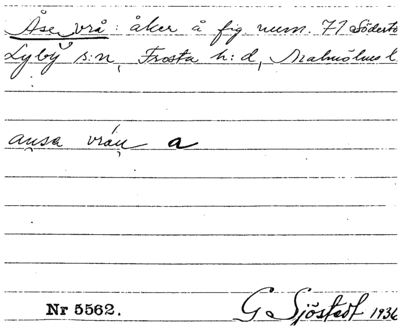 Åse vrå: åker å fig num. 77 Söderto
Lyby s:n, Frosta h:d, Malmöhus l
ausa vráu a
Nr 5562. G Sjöstedt 1936